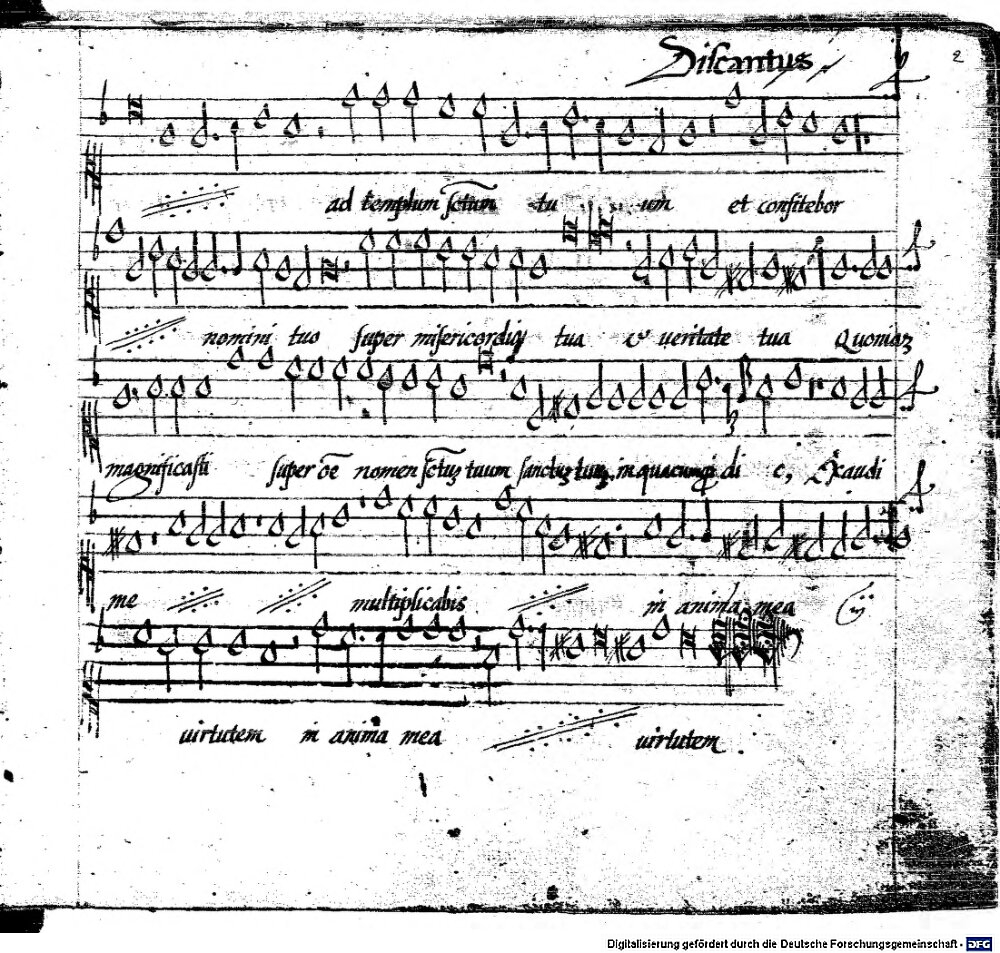 Discantus
2
ad templum sctum tu um et confitebor
nomini tuo super misericordia tua & veritate tua Quoniaz
magnificasti super oe nomen sctuz tuum sanctuz tuuz, in quacunq di e, Exaudi
me multiplicabis in anima mea
virtutem in anima mea virtutem.
Digitalisierung gefördert durch die Deutsche Forschungsgemeinschaft - DFG